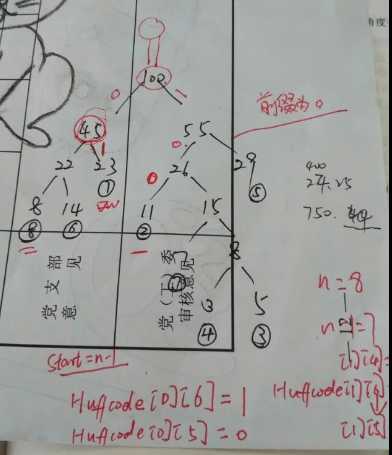 角度
100
0
45
55
前缀为0
0
22
23
26
29
400
24.25
①
⑤
8
14
0
11
15
750.
⑧
⑥
②
8
党支部意见
党（工）委审核意见
6
5
④
③
n=8
start=n-1
[1][4]=
Huffcode[0][6]=1
Huffcode[1][6]
Huffcode[0][5]=0
[1][5]